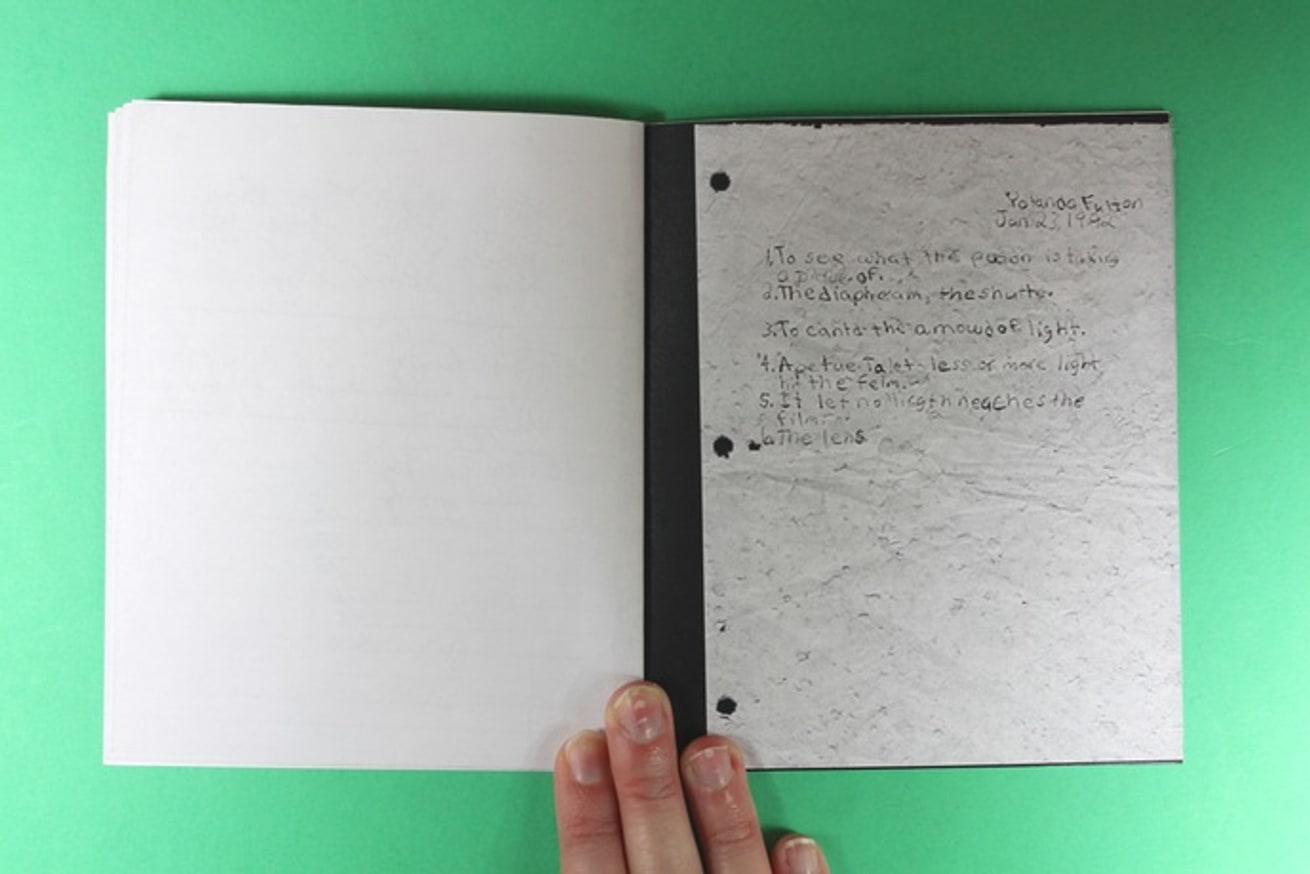 Yolanda Fulton
Jan 23, 1992
1. To see what the peoson is taking
a picture of.
2. The diaphram, the shutter.
3. To canta the amowd of light.
4. Apetue. To let less or more light
hit the felm.
5. It let no liegth neaches the
film.
6. The lens